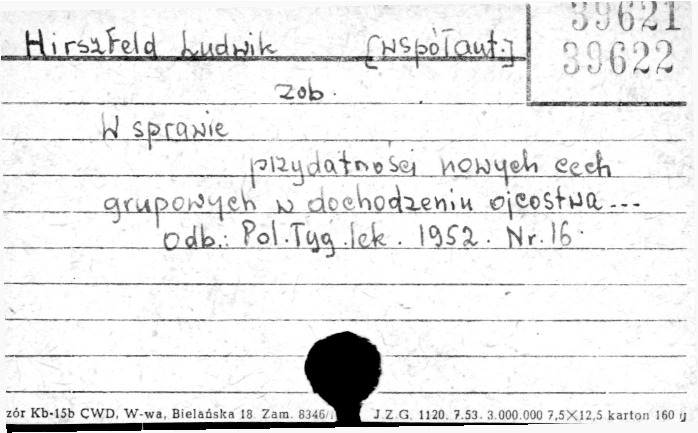 39621
Hirszfeld Ludwik [współaut.]
39622
zob.
W sprawie
przydatności nowych cech
grupowych w dochodzeniu ojcostwa...
Odb.: Pol.Tyg.lek. 1952. Nr.16.
zór Kb-15b CWD, W-wa, Bielańska 18. Zam. 8346/ J.Z.G. 1120. 7.53. 3.000.000 7,5×12,5 karton 160 g